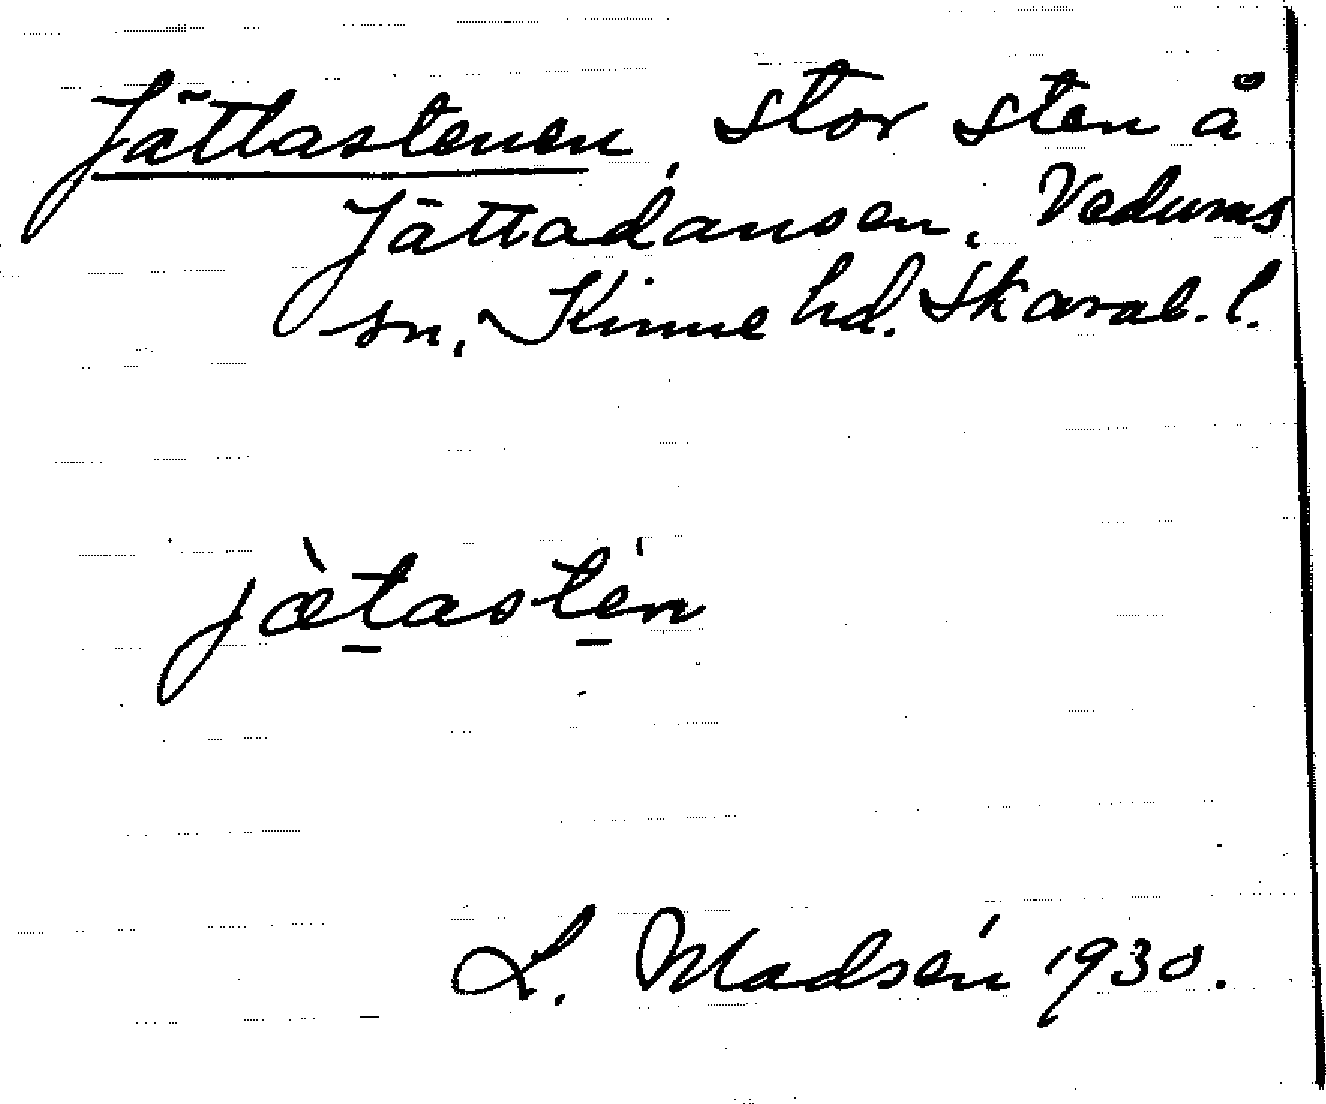 Jättastenen, stor sten å
Jättadansen, Vedums
sn, Kinne hd. Skarab. l.
jæ̀tastén
L. Madsén 1930.